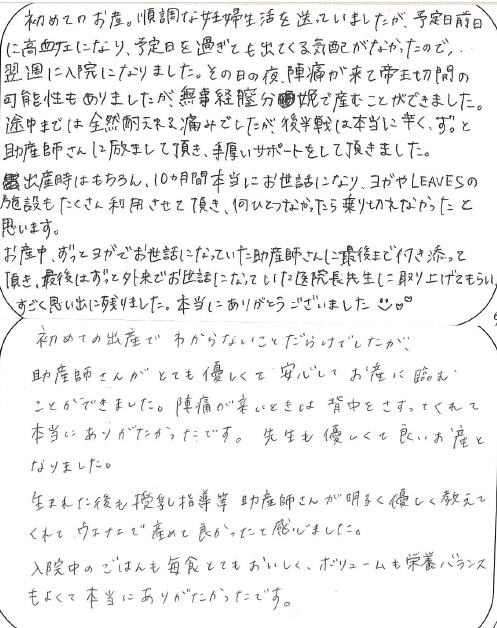 初めてのお産。順調な妊婦生活を送っていましたが、予定日前日
に高血圧になり、予定日を過ぎても出てくる気配がなかったので、
翌週に入院になりました。その日の夜、陣痛が来て帝王切開の
可能性もありましたが、無事経膣分娩で産むことができました。
途中までは全然耐えれる痛みでしたが、後半戦は本当に辛く、ずっと
助産師さんに励まして頂き、手厚いサポートをして頂きました。
出産時はもちろん、10ヵ月間本当にお世話になり、ヨガやLEAVESの
施設もたくさん利用させて頂き、何ひとつなかったら乗り切れなかったと
思います。
お産中、ずっとヨガでお世話になっていた助産師さんに最後まで付き添って
頂き、最後はずっと外来でお世話になっていた医院長先生に取り上げてもらい、
すごく思い出に残りました。本当にありがとうございました
初めての出産で わからないことだらけでしたが、
助産師さんがとても優しくて 安心して お産に臨む
ことができました。陣痛が辛いときは 背中をさすってくれて
本当にありがたかったです。 先生も優しくて良いお産と
なりました。
生まれた後も授乳指導等 助産師さんが明るく優しく教えて
くれて ウエナエで産めて良かったと感じました。
入院中のごはんも毎食とてもおいしく、ボリュームも栄養バランス
もよくて本当にありがたかったです。